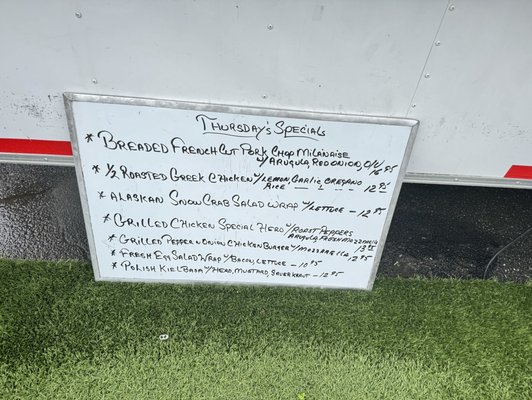 Thursday's Specials
* Breaded French Cut Pork Chop Milainaise
w/ Arugula, Red Onion, O/V 16.95
* 1/2 Roasted Greek Chicken w/ Lemon, Garlic Oregano
Rice — 12.95
* Alaskan Snow Crab Salad Wrap w/ Lettuce – 12.95
* Grilled Chicken Special Hero w/ Roast Peppers
Arugula, Fresh Mozzarella
13.95
* Grilled Pepper n Onion Chicken Burger w/ Mozzarella
12.95
* Fresh Egg Salad Wrap w/ Bacon, Lettuce – 10.95
* Polish Kielbasa w/ Hero, Mustard, Sauerkraut – 12.95